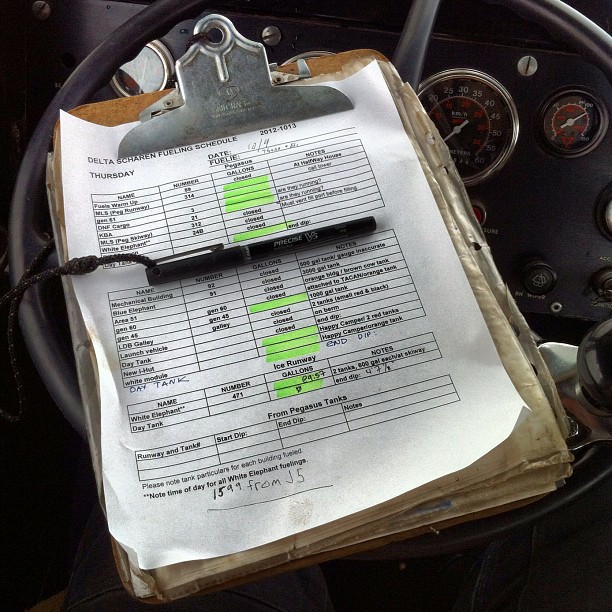 DELTA SCHAREN FUELING SCHEDULE 2012-1013
THURSDAY DATE: 10/9
FUELIE:
Pegasus
NAME NUMBER GALLONS NOTES
Fuels Warm Up 69 closed At HalfWay House
MLS (Peg Runway) 314 call tower
gen 51 3 are they running?
DNF Cargo closed are they running?
KBA 312 closed Must vent fill port before filling
MLS (Peg Skiway) 24B
White Elephant** closed
Day Tank end dip:
PRECISE V5
NAME NUMBER GALLONS NOTES
Mechanical Building 92 closed 500 gal tank/ gauge inaccurate
Blue Elephant 91 3000 gal tank
Area 51 closed orange bldg / brown cow tank
gen 60 gen 60 attached to TACAN/orange tank
gen 45 gen 45 closed 1000 gal tank
LDB Galley galley 2 tanks (small red & black)
Launch vehicle closed on berm
Day Tank end dip:
New I-Hut Happy Camper/ 2 red tanks
white module Happy Camper/orange tank
DAY TANK END DIP:
Ice Runway
NAME NUMBER GALLONS NOTES
White Elephant** 471 09:57 2 tanks, 600 gal each/at skiway
Day Tank end dip: 47.8
From Pegasus Tanks
Runway and Tank# Start Dip: End Dip: Notes
Please note tank particulars for each building fueled.
**Note time of day for all White Elephant fuelings.
1599 from J5
km/h